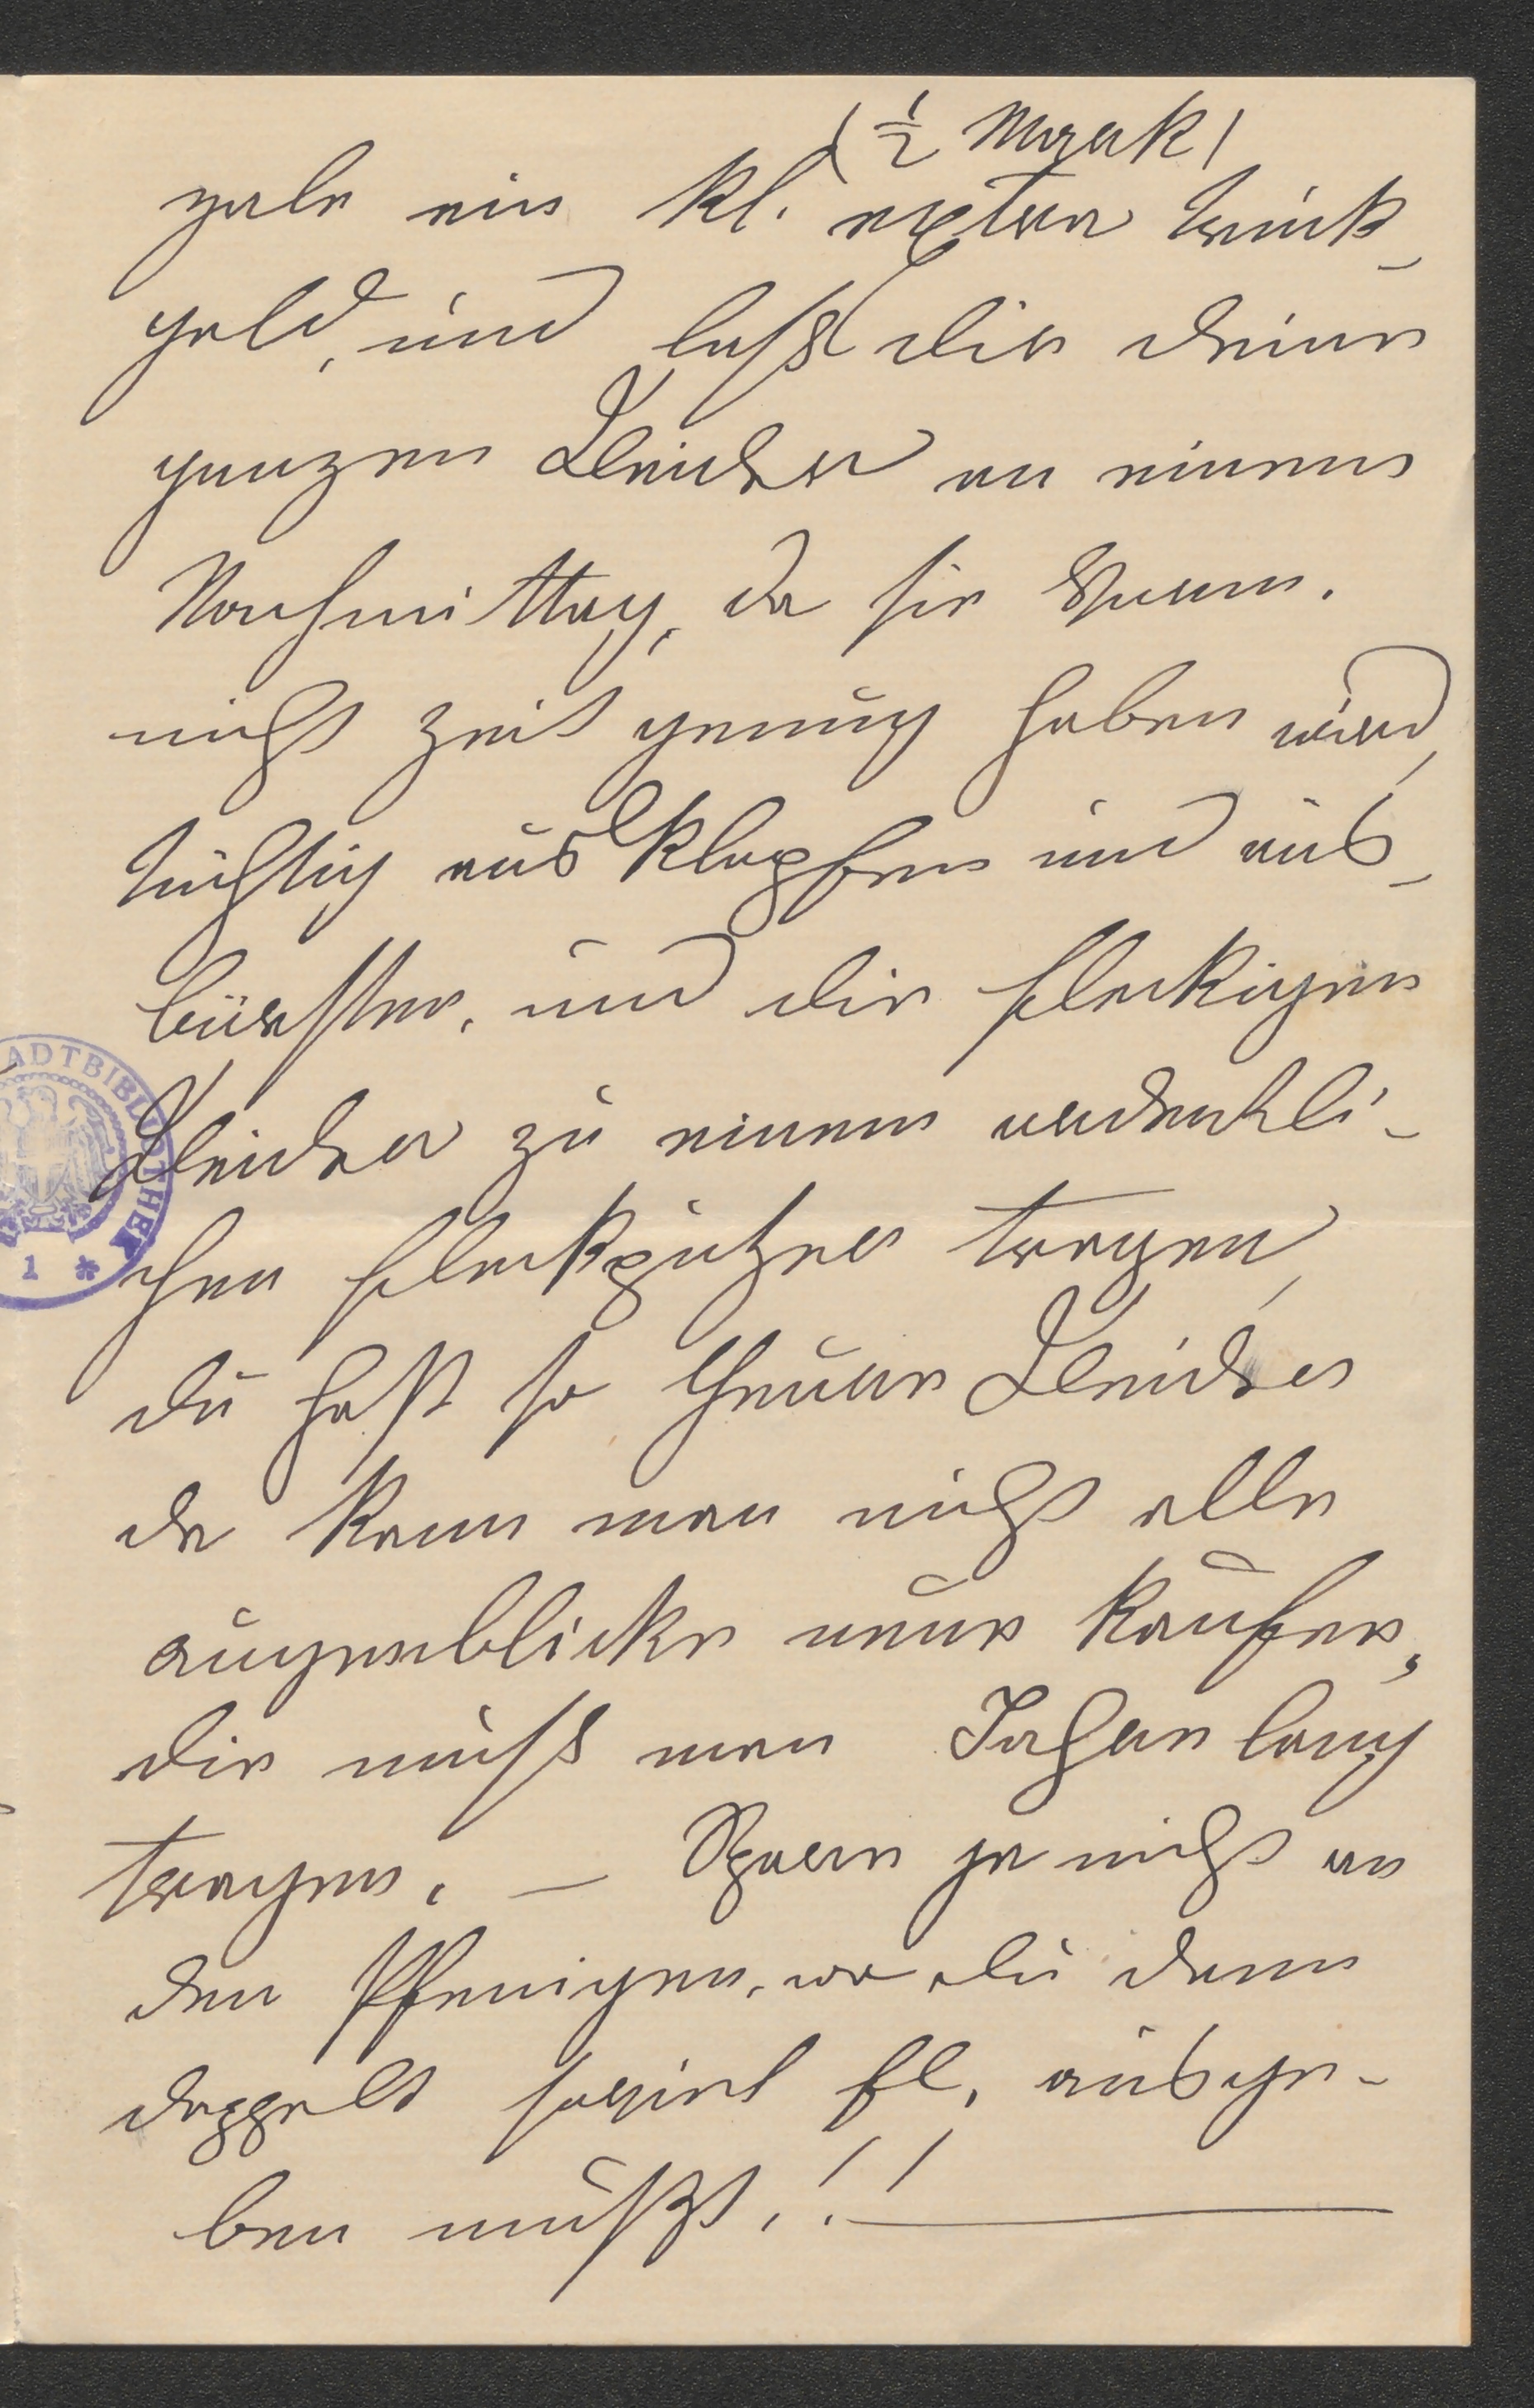 (½ Mark)
gebe ein kl. extra Trink-
geld, und laß dir deine
ganzen Kleider an einem
Nachmittag, da sie Vorm.
nicht Zeit genug haben wird,
tüchtig ausklopfen und aus-
bürsten, und die fleckigen
Kleider zu einem ordentli-
chen Fleckputzer tragen,
du hast so theure Kleider
da kann man nicht alle
augenblicke neue kaufen,
die muß man Jahre lang
tragen. — Spare ja nicht an
den Pfenigen, wo du dann
doppelt soviel fl. ausge-
ben mußt,!!
ADTBIBLIOTHEK
1 *